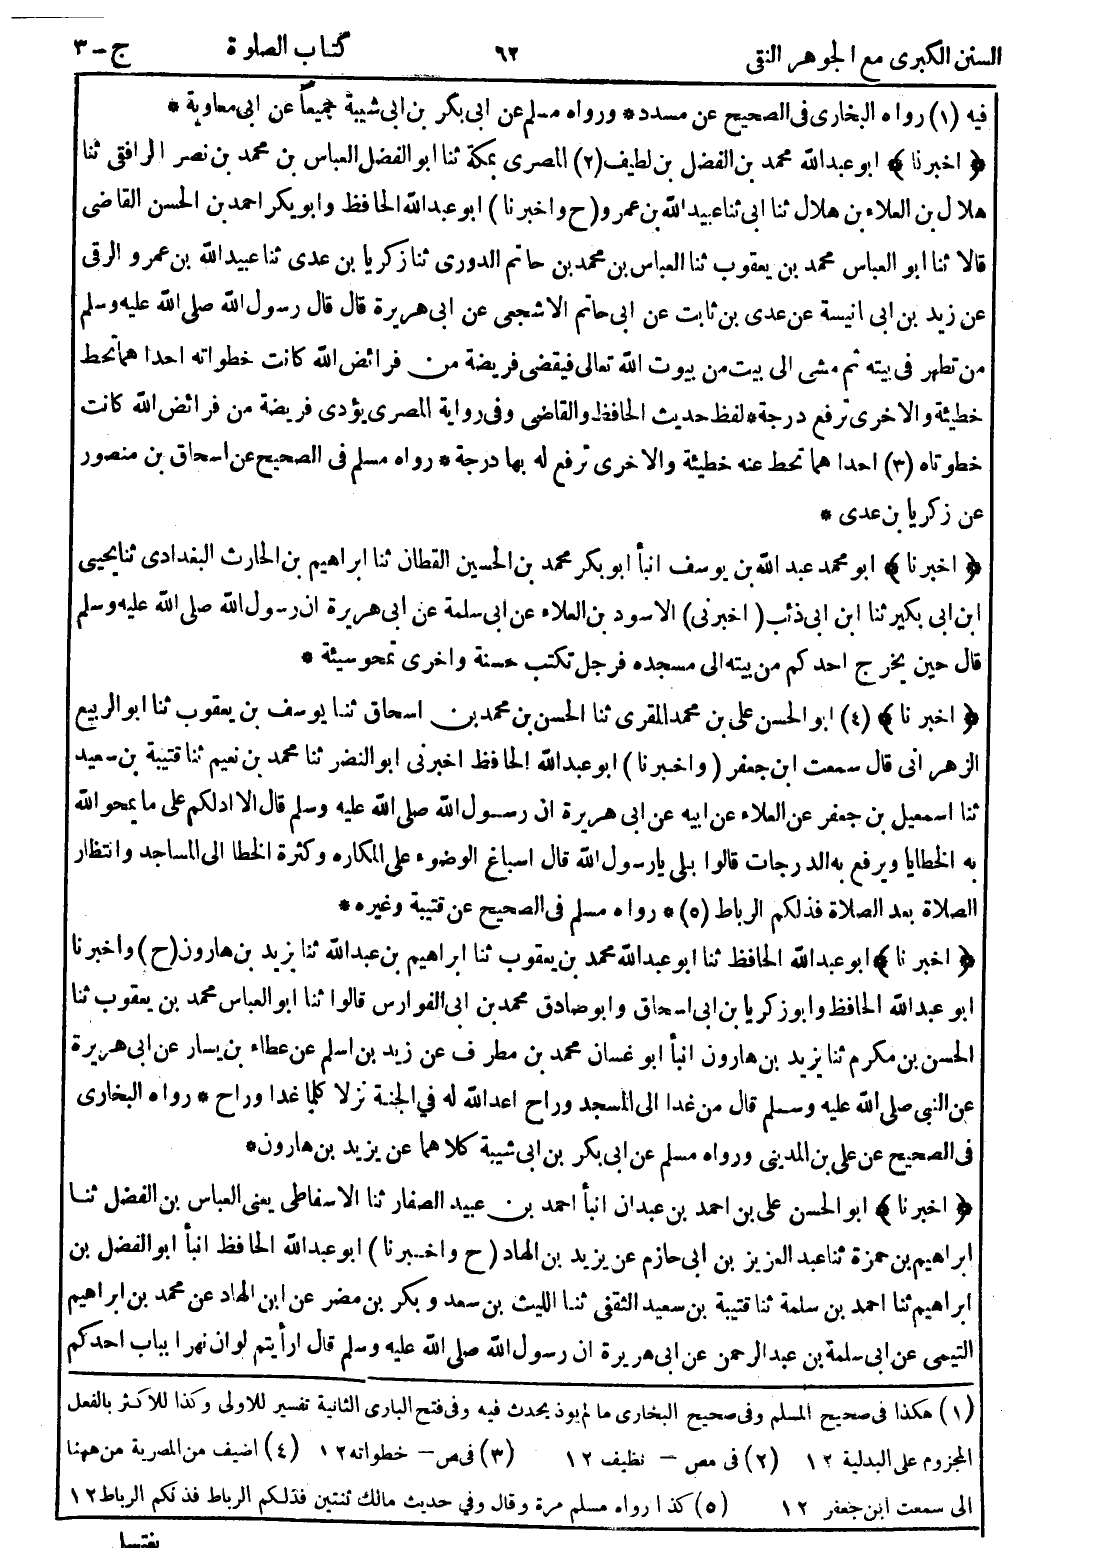 السنن الكبرى مع الجوهر النقى ٦٢ كتاب الصلوة ج-٣
فيه (١) رواه البخارى فى الصحيح عن مسدد * ورواه مسلم عن ابى بكر بن ابى شيبة جميعاً عن ابى معاوية *
﴿ اخبرنا ﴾ ابو عبدالله محمد بن الفضل بن لطيف (٢) المصرى بمكة ثنا ابو الفضل العباس بن محمد بن نصر الرافقى ثنا
هلال بن العلاء بن هلال ثنا ابى ثنا عبيد الله بن عمرو (ح واخبرنا) ابو عبدالله الحافظ وابوبكر احمد بن الحسن القاضى
قالا ثنا ابو العباس محمد بن يعقوب ثنا العباس بن محمد بن حاتم الدورى ثنا زكريا بن عدى ثنا عبيد الله بن عمرو الرقى
عن زيد بن ابى انيسة عن عدى بن ثابت عن ابى حاتم الاشجعى عن ابى هريرة قال قال رسول الله صلى الله عليه وسلم
من تطهر فى بيته ثم مشى الى بيت من بيوت الله تعالى فيقضى فريضة من فرائض الله كانت خطواته احدا هما تحط
خطيئة والاخرى ترفع درجة * لفظ حديث الحافظ والقاضى وفى رواية المصرى يؤدى فريضة من فرائض الله كانت
خطوتاه (٣) احدا هما تحط عنه خطيئة والاخرى ترفع له بها درجة * رواه مسلم فى الصحيح عن اسحاق بن منصور
عن زكريا بن عدى *
﴿ اخبرنا ﴾ ابو محمد عبد الله بن يوسف انبأ ابوبكر محمد بن الحسين القطان ثنا ابراهيم بن الحارث البغدادى ثنا يحيى
ابن ابى بكير ثنا ابن ابى ذئب (اخبرنى) الاسود بن العلاء عن ابى سلمة عن ابى هريرة ان رسول الله صلى الله عليه وسلم
قال حين يخرج احدكم من بيته الى مسجده فرجل تكتب حسنة واخرى تمحو سيئة *
﴿ اخبرنا ﴾ (٤) ابو الحسن على بن محمد المقرى ثنا الحسن بن محمد بن اسحاق ثنا يوسف بن يعقوب ثنا ابو الربيع
الزهرانى قال سمعت ابن جعفر (واخبرنا) ابو عبدالله الحافظ اخبرنى ابو النضر ثنا محمد بن نعيم ثنا قتيبة بن سعيد
ثنا اسمعيل بن جعفر عن العلاء عن ابيه عن ابى هريرة ان رسول الله صلى الله عليه وسلم قال الا ادلكم على ما يمحو الله
به الخطايا ويرفع به الدرجات قالوا بلى يا رسول الله قال اسباغ الوضوء على المكاره وكثرة الخطا الى المساجد وانتظار
الصلاة بعد الصلاة فذلكم الرباط (٥) * رواه مسلم فى الصحيح عن قتيبة وغيره *
﴿ اخبرنا ﴾ ابو عبدالله الحافظ ثنا ابو عبدالله محمد بن يعقوب ثنا ابراهيم بن عبدالله ثنا يزيد بن هارون (ح) واخبرنا
ابو عبدالله الحافظ وابوزكريا بن ابى اسحاق وابوصادق محمد بن ابى الفوارس قالوا ثنا ابو العباس محمد بن يعقوب ثنا
الحسن بن مكرم ثنا يزيد بن هارون انبأ ابو غسان محمد بن مطرف عن زيد بن اسلم عن عطاء بن يسار عن ابى هريرة
عن النبى صلى الله عليه وسلم قال من غدا الى المسجد وراح اعد الله له في الجنة نزلا كلما غدا وراح * رواه البخارى
فى الصحيح عن على بن المدينى ورواه مسلم عن ابى بكر بن ابى شيبة كلاهما عن يزيد بن هارون *
﴿ اخبرنا ﴾ ابو الحسن على بن احمد بن عبدان انبأ احمد بن عبيد الصفار ثنا الاسفاطى يعنى العباس بن الفضل ثنا
ابراهيم بن حمزة ثنا عبد العزيز بن ابى حازم عن يزيد بن الهاد (ح واخبرنا) ابو عبدالله الحافظ انبأ ابو الفضل بن
ابراهيم ثنا احمد بن سلمة ثنا قتيبة بن سعيد الثقفى ثنا الليث بن سعد وبكر بن مضر عن ابن الهاد عن محمد بن ابراهيم
التيمى عن ابى سلمة بن عبد الرحمن عن ابى هريرة ان رسول الله صلى الله عليه وسلم قال ارأيتم لو ان نهرا بباب احدكم
(١) هكذا فى صحيح المسلم وفى صحيح البخارى ما لم يوذ يحدث فيه وفى فتح البارى الثانية تفسير للاولى وكذا للاكثر بالفعل
المجزوم على البدلية ١٢ (٢) فى مص - نظيف ١٢ (٣) فى ص - خطواته ١٢ (٤) اضيف من المصرية من ههنا
الى سمعت ابن جعفر ١٢ (٥) كذا رواه مسلم مرة وقال وفي حديث مالك ثنتين فذلكم الرباط فذلكم الرباط ١٢
يغتسل